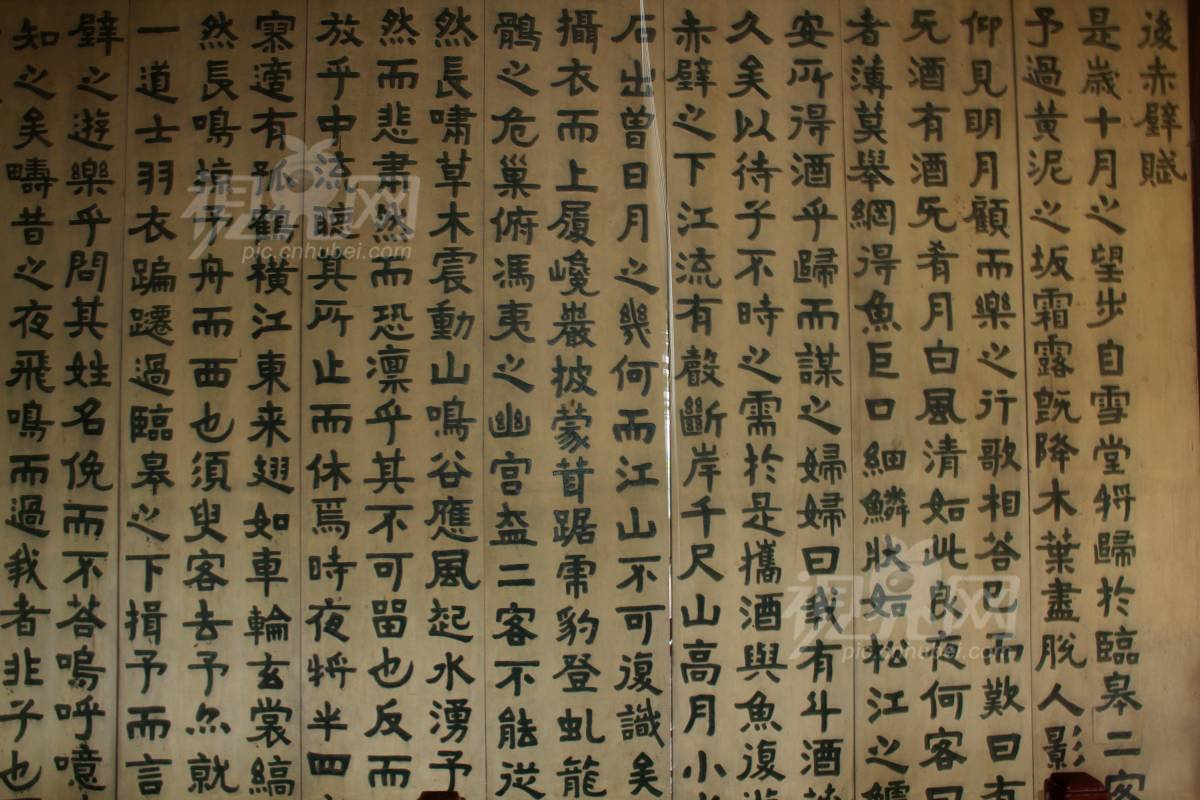 後赤壁賦
是歲十月之望步自雪堂將歸於臨皋二客
予過黃泥之坂霜露既降木葉盡脫人影
仰見明月顧而樂之行歌相答已而歎曰有
旡酒有酒旡肴月白風清如此良夜何客曰
者薄莫舉網得魚巨口細鱗狀如松江之鱸
安所得酒乎歸而謀之婦婦曰我有斗酒
久矣以待子不時之需於是攜酒與魚復遊
赤壁之下江流有聲斷岸千尺山高月小
石出曾日月之幾何而江山不可復識矣
攝衣而上履巉巖披蒙茸踞虎豹登虬龍
鶻之危巢俯馮夷之幽宮盖二客不能從
然長嘯草木震動山鳴谷應風起水湧予
然而悲肅然而恐凛乎其不可留也反而
放乎中流聽其所止而休焉時夜將半四
寥適有孤鶴橫江東来翅如車輪玄裳縞
然長鳴掠予舟而西也須臾客去予亦就
一道士羽衣蹁躚過臨皋之下揖予而言
壁之遊樂乎問其姓名俛而不答嗚呼噫
知之矣疇昔之夜飛鳴而過我者非子也
视界网
pic.cnhubei.com
视界网
pic.cnhubei.com